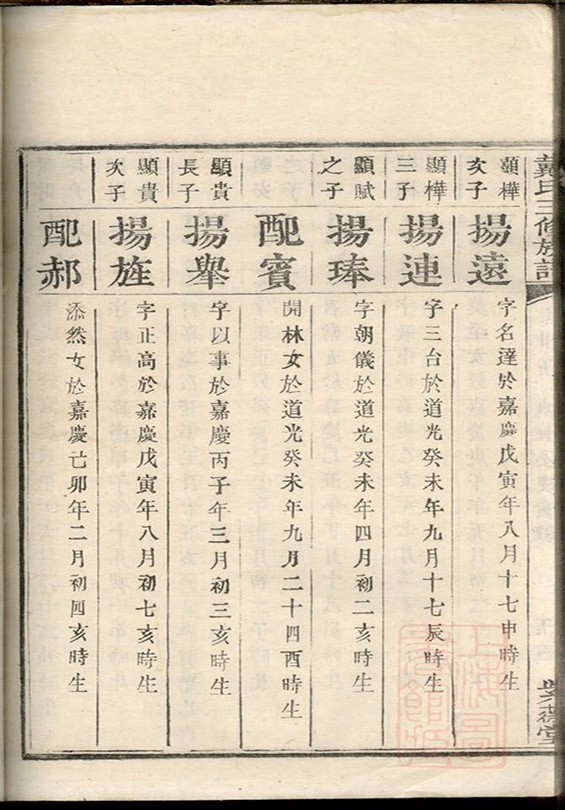 戴氏三修族譜
顯樺次子
揚遠
字名達於嘉慶戊寅年八月十七申時生
顯樺三子
揚連
字三台於道光癸未年九月十七辰時生
顯賦之子
揚琫
字朝儀於道光癸未年四月初二亥時生
配賓
開林女於道光癸未年九月二十四酉時生
顯貴長子
揚舉
字以事於嘉慶丙子年三月初三亥時生
顯貴次子
揚旌
字正高於嘉慶戊寅年八月初七亥時生
配郝
添然女於嘉慶己卯年二月初四亥時生